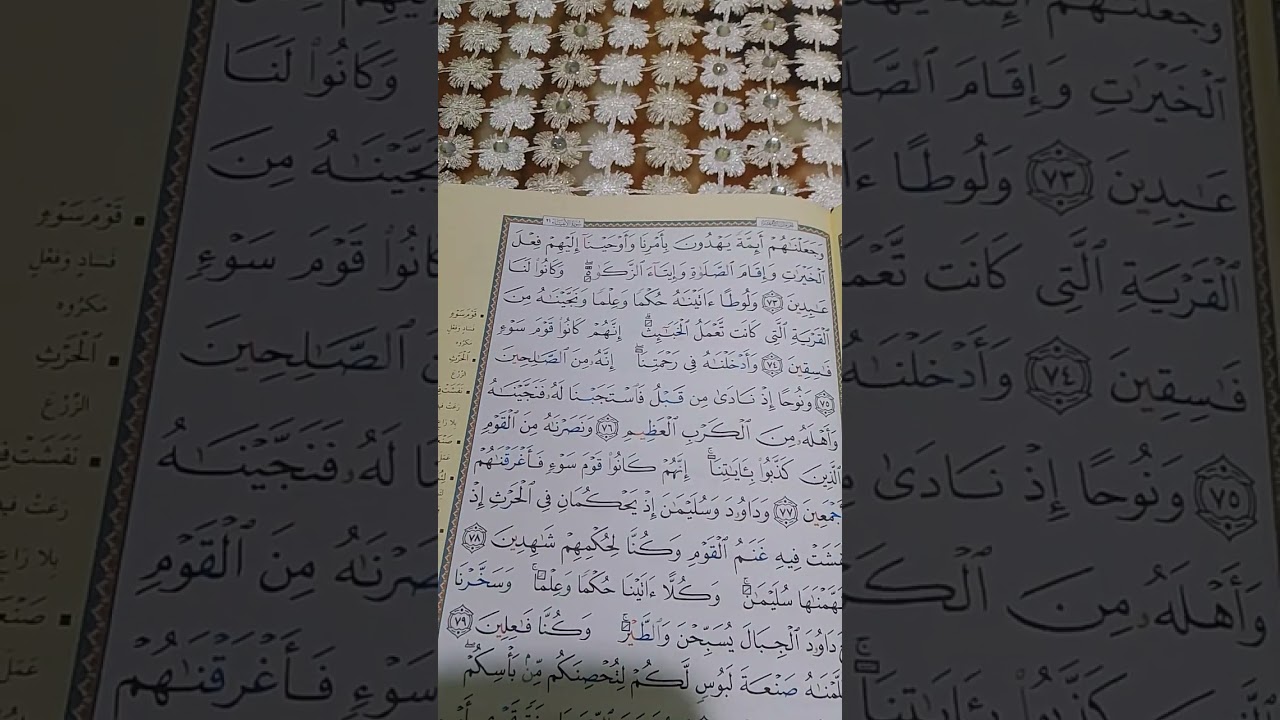 وَجَعَلْنَٰهُمْ أَئِمَّةً يَهْدُونَ بِأَمْرِنَا وَأَوْحَيْنَآ إِلَيْهِمْ فِعْلَ
ٱلْخَيْرَٰتِ وَإِقَامَ ٱلصَّلَوٰةِ وَإِيتَآءَ ٱلزَّكَوٰةِ ۖ وَكَانُوا۟ لَنَا
عَٰبِدِينَ ٧٣ وَلُوطًا ءَاتَيْنَٰهُ حُكْمًا وَعِلْمًا وَنَجَّيْنَٰهُ مِنَ
ٱلْقَرْيَةِ ٱلَّتِى كَانَت تَّعْمَلُ ٱلْخَبَٰٓئِثَ ۗ إِنَّهُمْ كَانُوا۟ قَوْمَ سَوْءٍ
فَٰسِقِينَ ٧٤ وَأَدْخَلْنَٰهُ فِى رَحْمَتِنَآ ۖ إِنَّهُۥ مِنَ ٱلصَّٰلِحِينَ
٧٥ وَنُوحًا إِذْ نَادَىٰ مِن قَبْلُ فَٱسْتَجَبْنَا لَهُۥ فَنَجَّيْنَٰهُ
وَأَهْلَهُۥ مِنَ ٱلْكَرْبِ ٱلْعَظِيمِ ٧٦ وَنَصَرْنَٰهُ مِنَ ٱلْقَوْمِ
ٱلَّذِينَ كَذَّبُوا۟ بِـَٔايَٰتِنَآ ۚ إِنَّهُمْ كَانُوا۟ قَوْمَ سَوْءٍ فَأَغْرَقْنَٰهُمْ
أَجْمَعِينَ ٧٧ وَدَاوُۥدَ وَسُلَيْمَٰنَ إِذْ يَحْكُمَانِ فِى ٱلْحَرْثِ إِذْ
نَفَشَتْ فِيهِ غَنَمُ ٱلْقَوْمِ وَكُنَّا لِحُكْمِهِمْ شَٰهِدِينَ ٧٨
فَفَهَّمْنَٰهَا سُلَيْمَٰنَ ۚ وَكُلًّا ءَاتَيْنَا حُكْمًا وَعِلْمًا ۚ وَسَخَّرْنَا
مَعَ دَاوُۥدَ ٱلْجِبَالَ يُسَبِّحْنَ وَٱلطَّيْرَ ۚ وَكُنَّا فَٰعِلِينَ ٧٩
وَعَلَّمْنَٰهُ صَنْعَةَ لَبُوسٍ لَّكُمْ لِتُحْصِنَكُم مِّنۢ بَأْسِكُمْ ۖ
قَوْمَ سَوْءٍ
فَسَادٍ وَفِعْلٍ
مَكْرُوهٍ
ٱلْحَرْثِ
الزَّرْعِ
نَفَشَتْ فِيهِ
رَعَتْ فِيهِ
بِلَا رَاعٍ